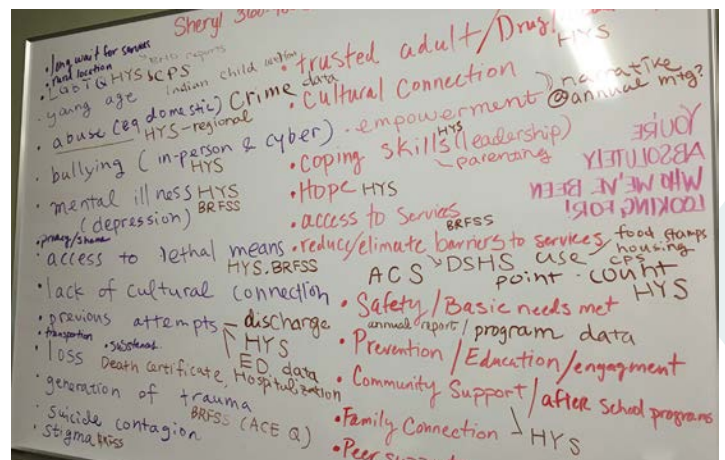 Sheryl
• long wait for services
• rural location
• LGBTQ HYS
CPS
reports
• young age
Indian child
• abuse (eg domestic) Crime data
HYS-regional
• bullying (in-person & cyber)
HYS
• mental illness HYS
(depression) BRFSS
• privacy/shame
• access to lethal means
HYS. BRFSS
• lack of cultural connection
• previous attempts – discharge
HYS
ED data
• transportion
• loss
Death certificate, Hospitalization
• generation of trauma
BRFSS (ACE Q)
• suicide contagion
• stigma BRFSS
• trusted adult/Drug
HYS
• Cultural Connection
• empowerment
narrative
@annual mtg?
• coping skills (leadership)
HYS
parenting
• Hope HYS
• access to services
BRFSS
• reduce/elimate barriers to services
ACS
DSHS use
food stamps
housing
CPS
point • count
HYS
• Safety/Basic needs met
annual report/program data
• Prevention/Education/engagment
• Community Support/after school programs
HYS
• Family Connection
• Peer
YOU'RE
ABSOLUTELY
WHO WE'VE BEEN
LOOKING FOR!